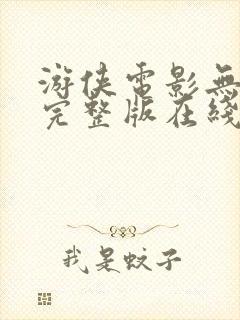 游侠電影無
完整版在綫
我是蚊子